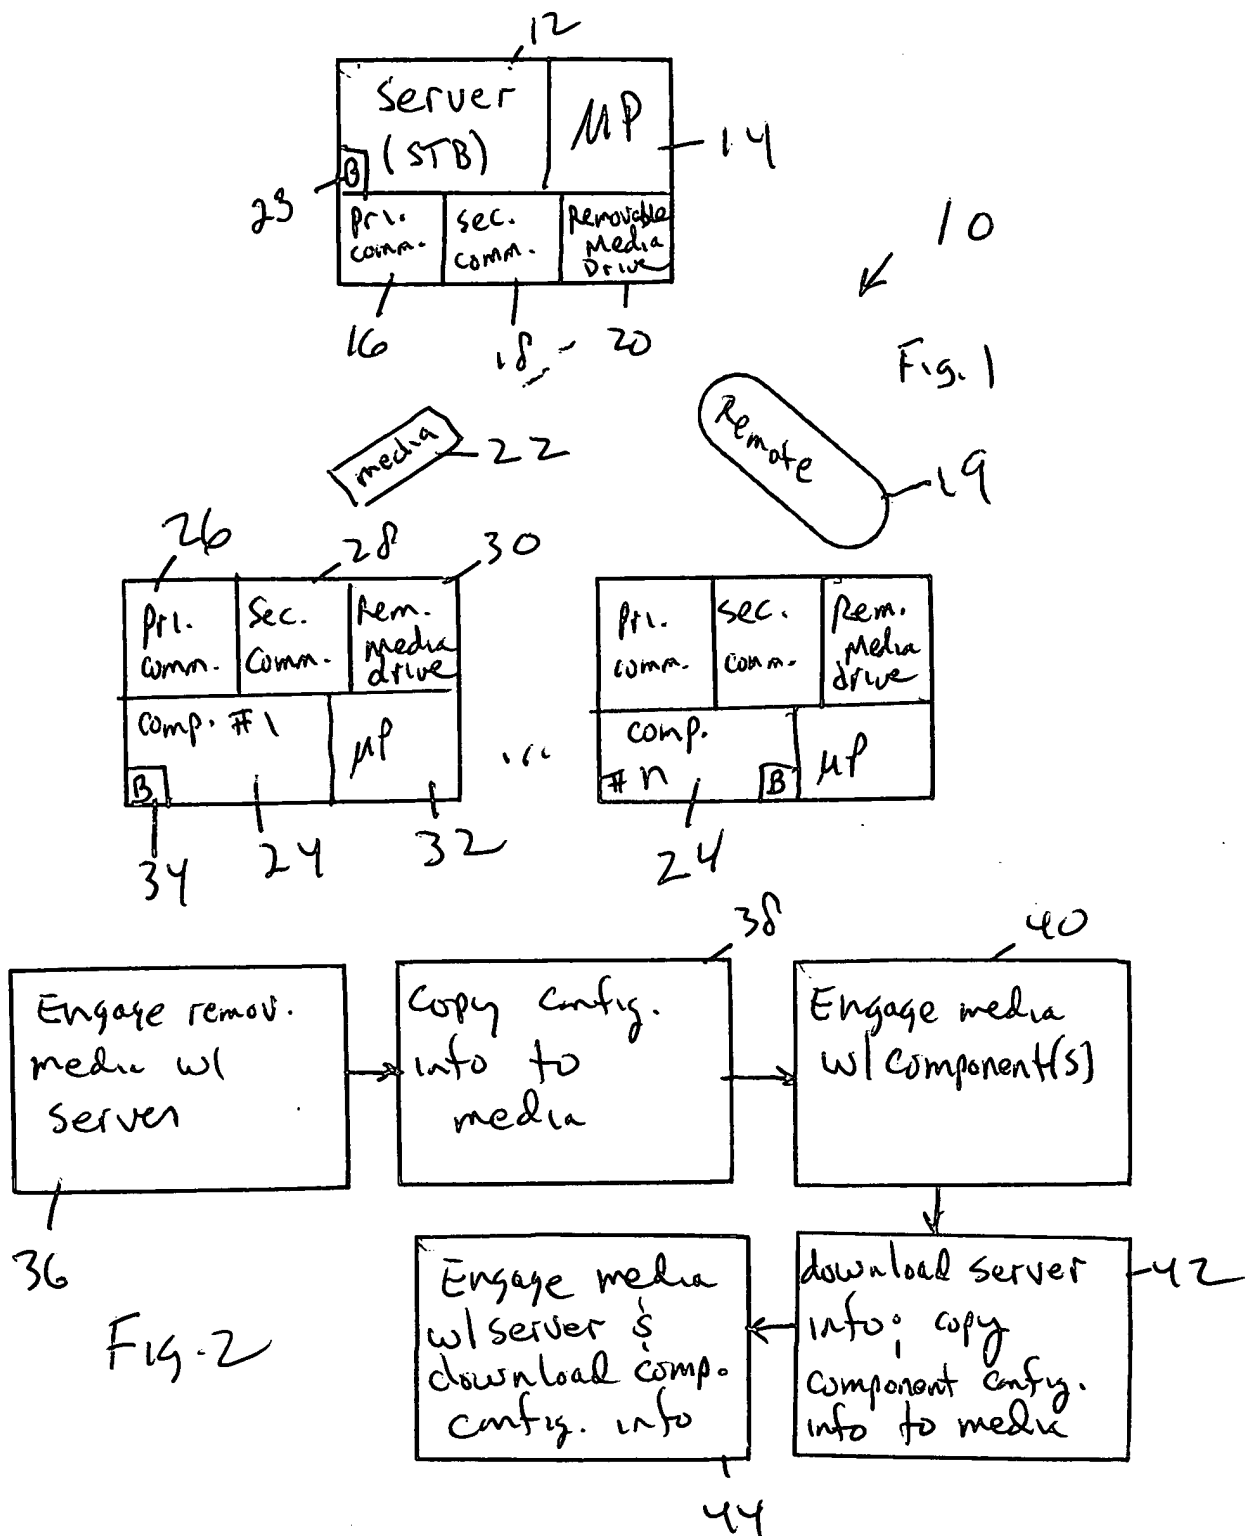 12
Server
(STB)
μP
14
B
23
Pri.
comm.
sec.
comm.
Removable
Media
Drive
16
18
20
10
Fig. 1
media
22
Remote
19
26
28
30
Pri.
comm.
Sec.
Comm.
Rem.
media
drive
comp. #1
μP
B
34
24
32
...
Pri.
comm.
sec.
comm.
Rem.
Media
drive
comp.
#n
B
μP
24
38
40
Engage remov.
media w/
server
Copy config.
info to
media
Engage media
w/ component(s)
36
Engage media
w/ server &
download comp.
config. info
download server
info; copy
component config.
info to media
42
Fig. 2
44